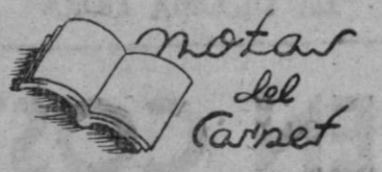 Notas
del
Carnet